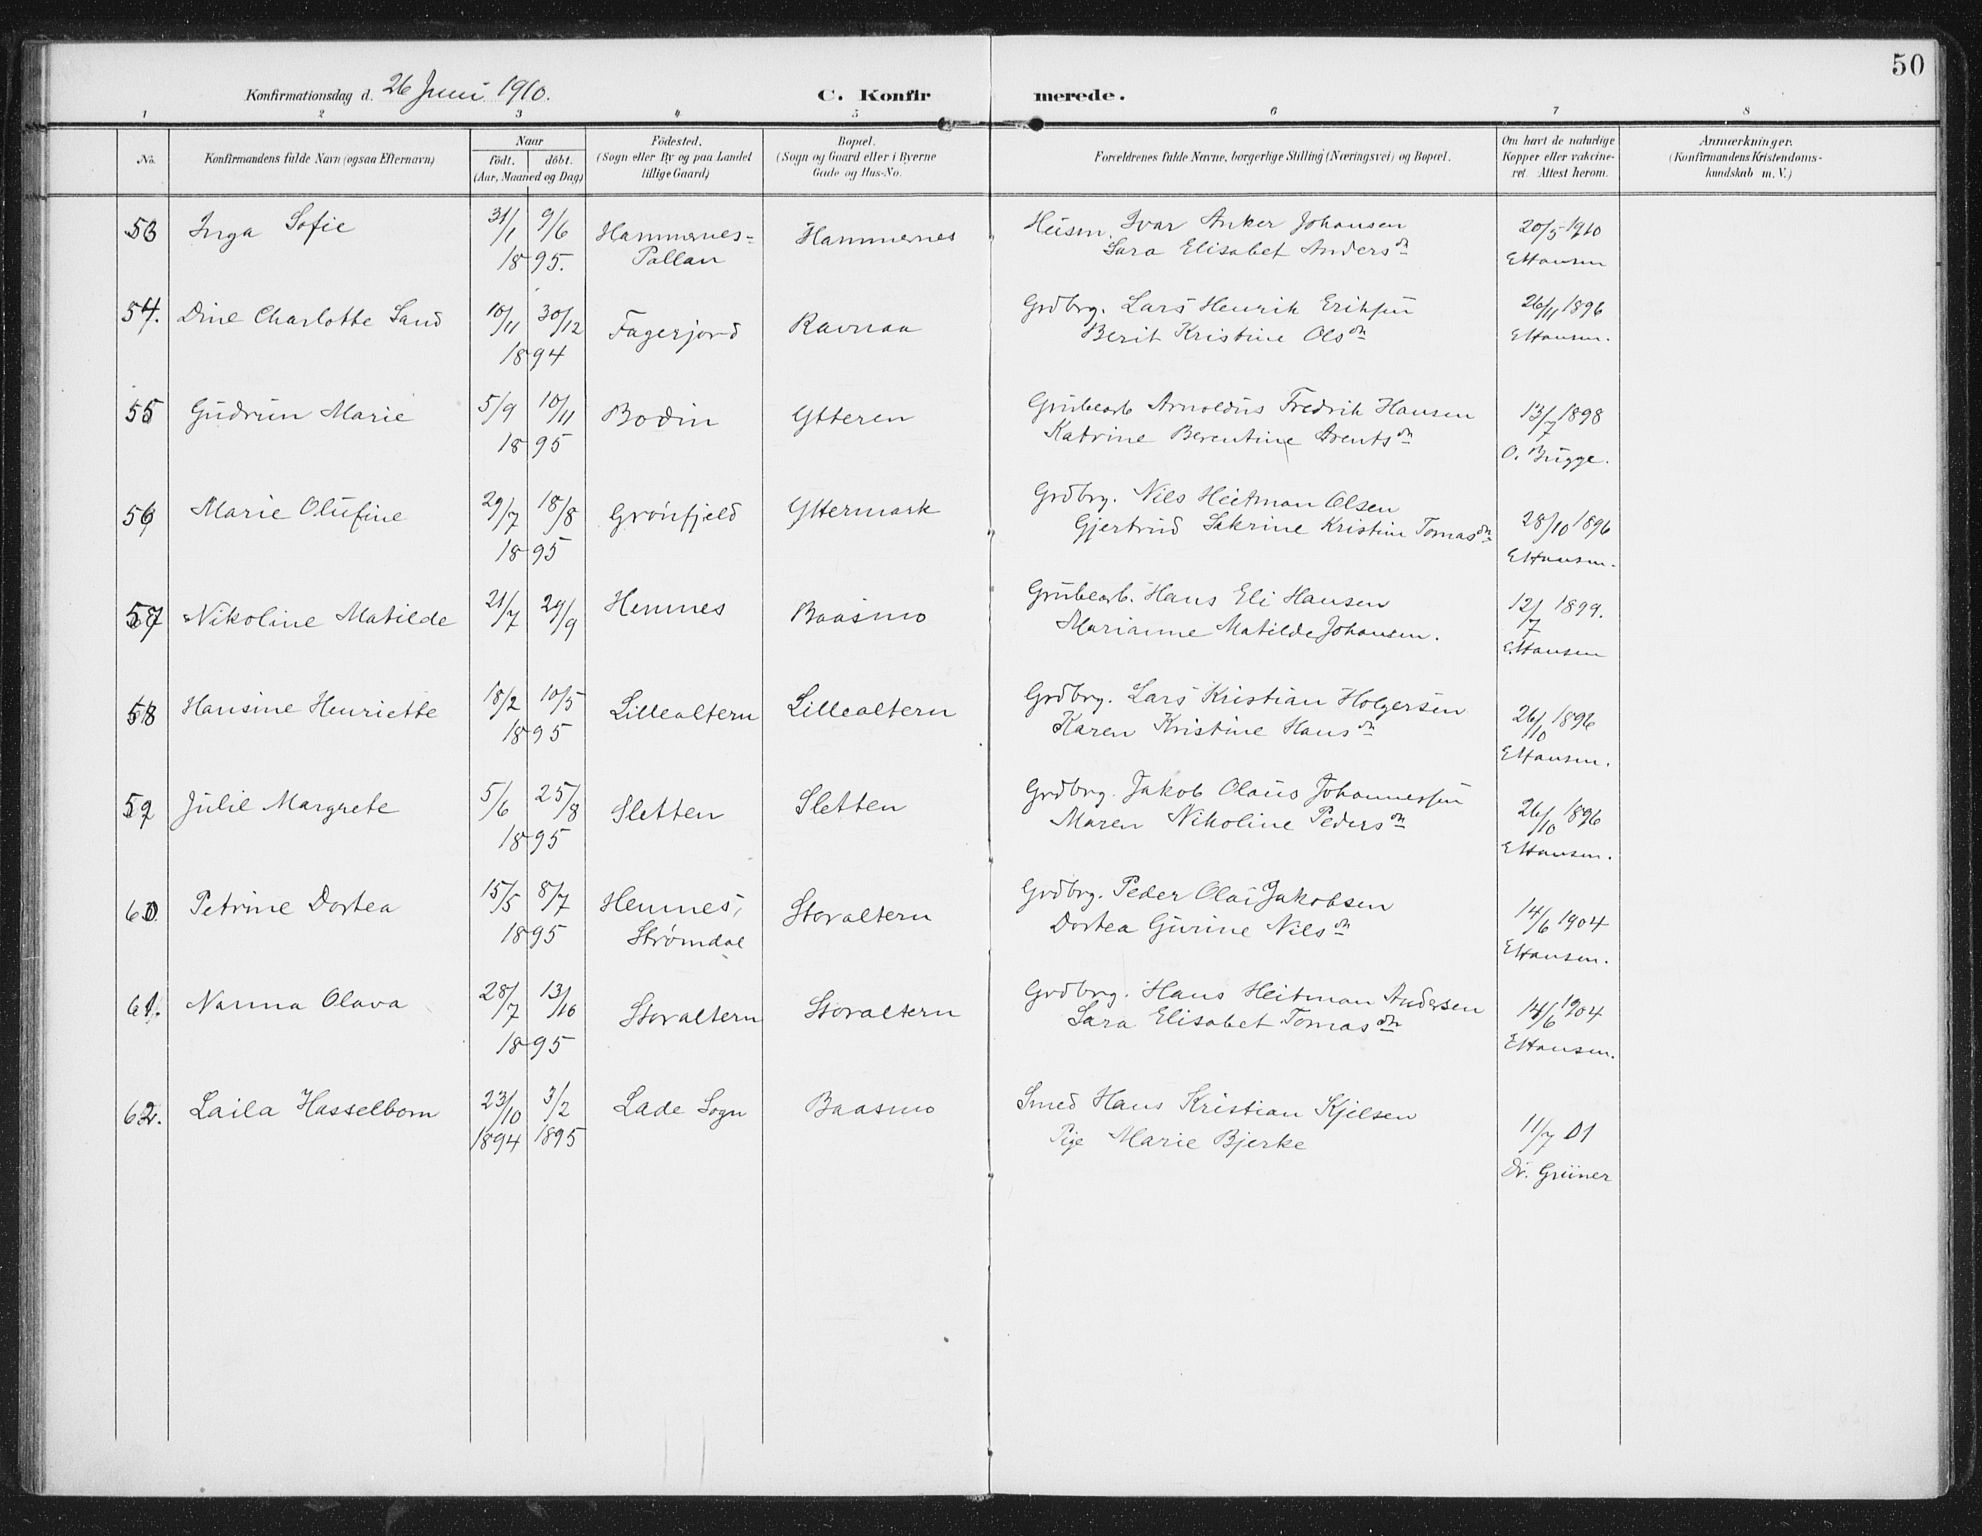 50
Konfirmationsdag d. 26 Juni 1910.
C. Konfir merede.
1 2 3 4 5 6 7 8
No.
Konfirmandens fulde Navn (ogsaa Efternavn)
Naar
födt. döbt.
(Aar, Maaned og Dag)
Födested.
(Sogn eller By og paa Landet
tillige Gaard)
Bopæl.
(Sogn og Gaard eller i Byerne
Gade og Hus-No.
Forældrenes fulde Navne, borgerlige Stilling (Næringsvei) og Bopæl.
Om havt de naturlige
Kopper eller vakcine-
ret. Attest herom.
Anmærkninger.
(Konfirmandens Kristendoms-
kundskab m. V.)
53 Inga Sofie 31/1 9/6 Hammernes- Hammernes Husm. Ivar Anker Johansen 20/5 1910
1895. Pallan Sara Elisabet Andersdn EHansen
54. Dine Charlotte Sand 10/11 30/12 Fagerjord Ravnaa Grdbrg. Lars Henrik Eriksen 26/11 1896
1894 Berit Kristine Olsdn EHansen.
55 Gudrun Marie 5/9 10/11 Bodin Ytteren Grubearb Arnoldus Fredrik Hansen 13/7 1898
1895 Katrine Berentine Arentsdn O. Bugge.
56 Marie Olufine 29/7 18/8 Grønfjeld Yttermark Grdbrg. Nils Heitman Olsen 28/10 1896
1895 Gjertrud Sakrine Kristine Tomasdn EHansen.
57 Nikoline Matilde 21/7 29/9 Hemnes Baasmo Grubearb. Hans Eli Hansen 12/7 1899.
Marianne Matilde Johansen. EHansen
58 Hansine Henriette 18/2 10/5 Lillealtern Lillealtern Grdbrg. Lars Kristian Holgersen 26/10 1896
1895 Karen Kristine Hansdn EHansen.
59 Julie Margrete 5/6 25/8 Sletten Sletten Grdbrg. Jakob Olaus Johannessen 26/10 1896
1895 Maren Nikoline Pedersdn EHansen.
60. Petrine Dortea 15/5 8/7 Hemnes, Storaltern Grdbrg. Peder Olai Jakobsen 14/6 1904
1895 Strømdal Dortea Gurine Nilsdn EHansen.
61. Nanna Olava 28/7 13/10 Storaltern Storaltern Grdbrg. Hans Heitman Andersen 14/6 1904
1895 Sara Elisabet Tomasdn EHansen.
62. Laila Hasselbom 23/10 3/2 Lade Sogn Baasmo Smed Hans Kristian Kjelsen 11/7 01
1894 1895 Pige Marie Bjerke Dr. Grüner